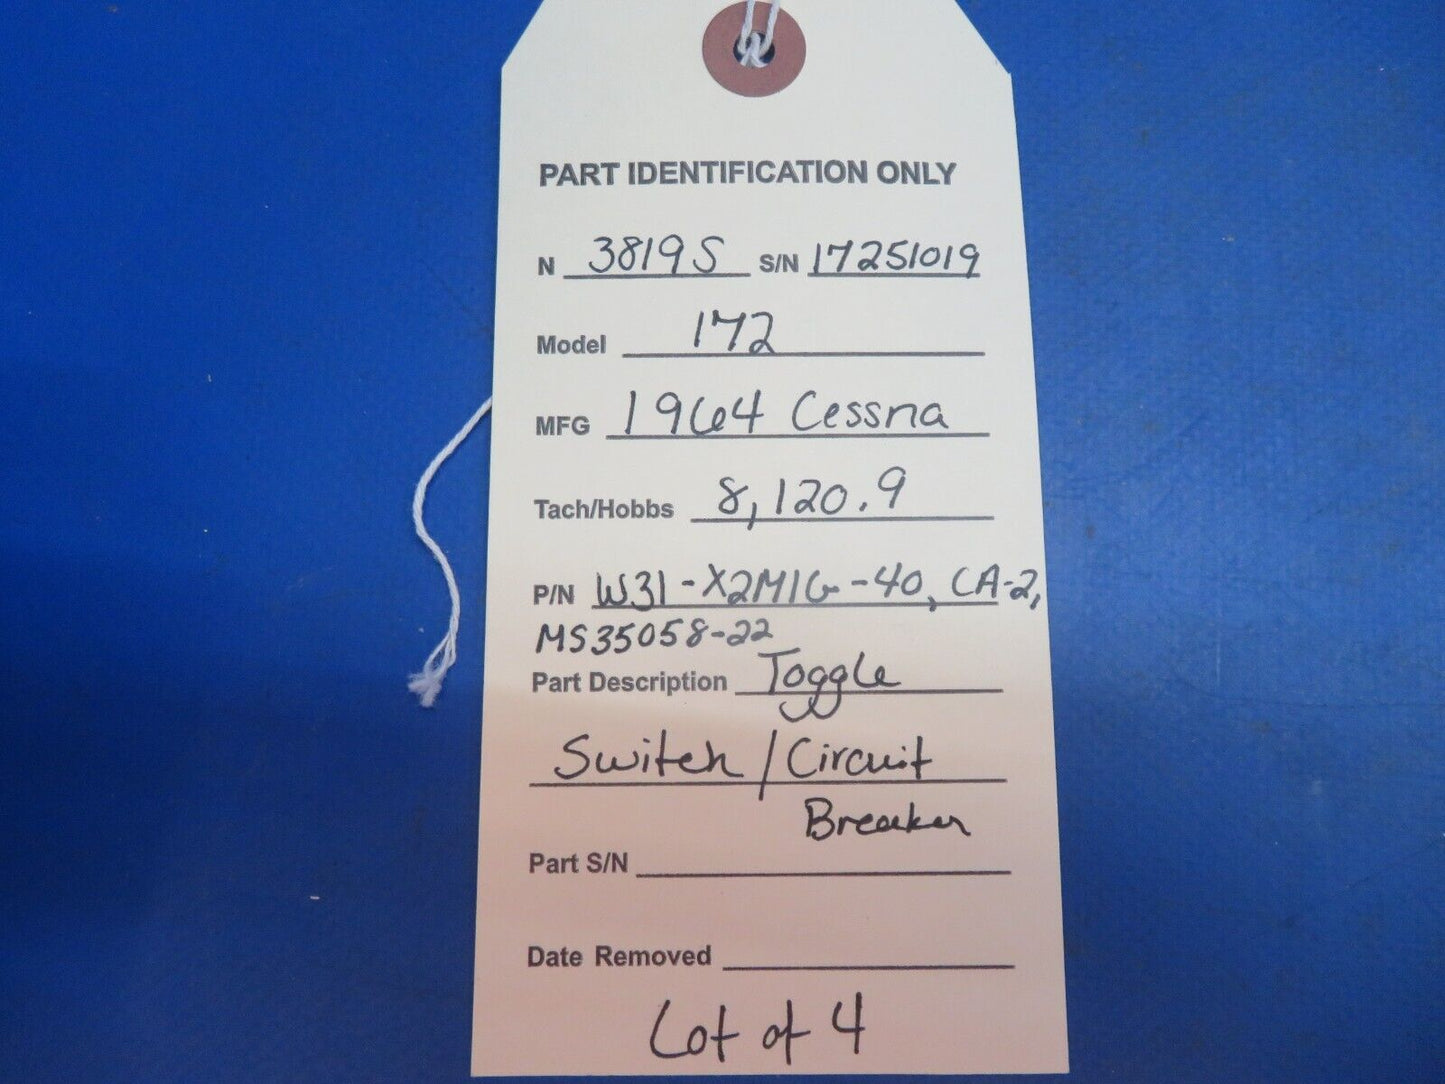 PART IDENTIFICATION ONLY
N 3819S S/N 17251019
Model 172
MFG 1964 Cessna
Tach/Hobbs 8,120.9
P/N W31-X2M1G-40, CA-2,
MS35058-22
Part Description Toggle
Switch / Circuit
Breaker
Part S/N
Date Removed
Lot of 4